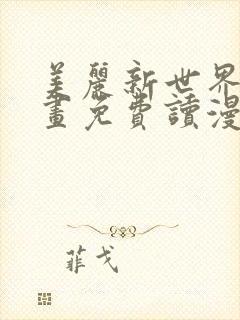 美麗新世界
畫免費讀漫
菲戈